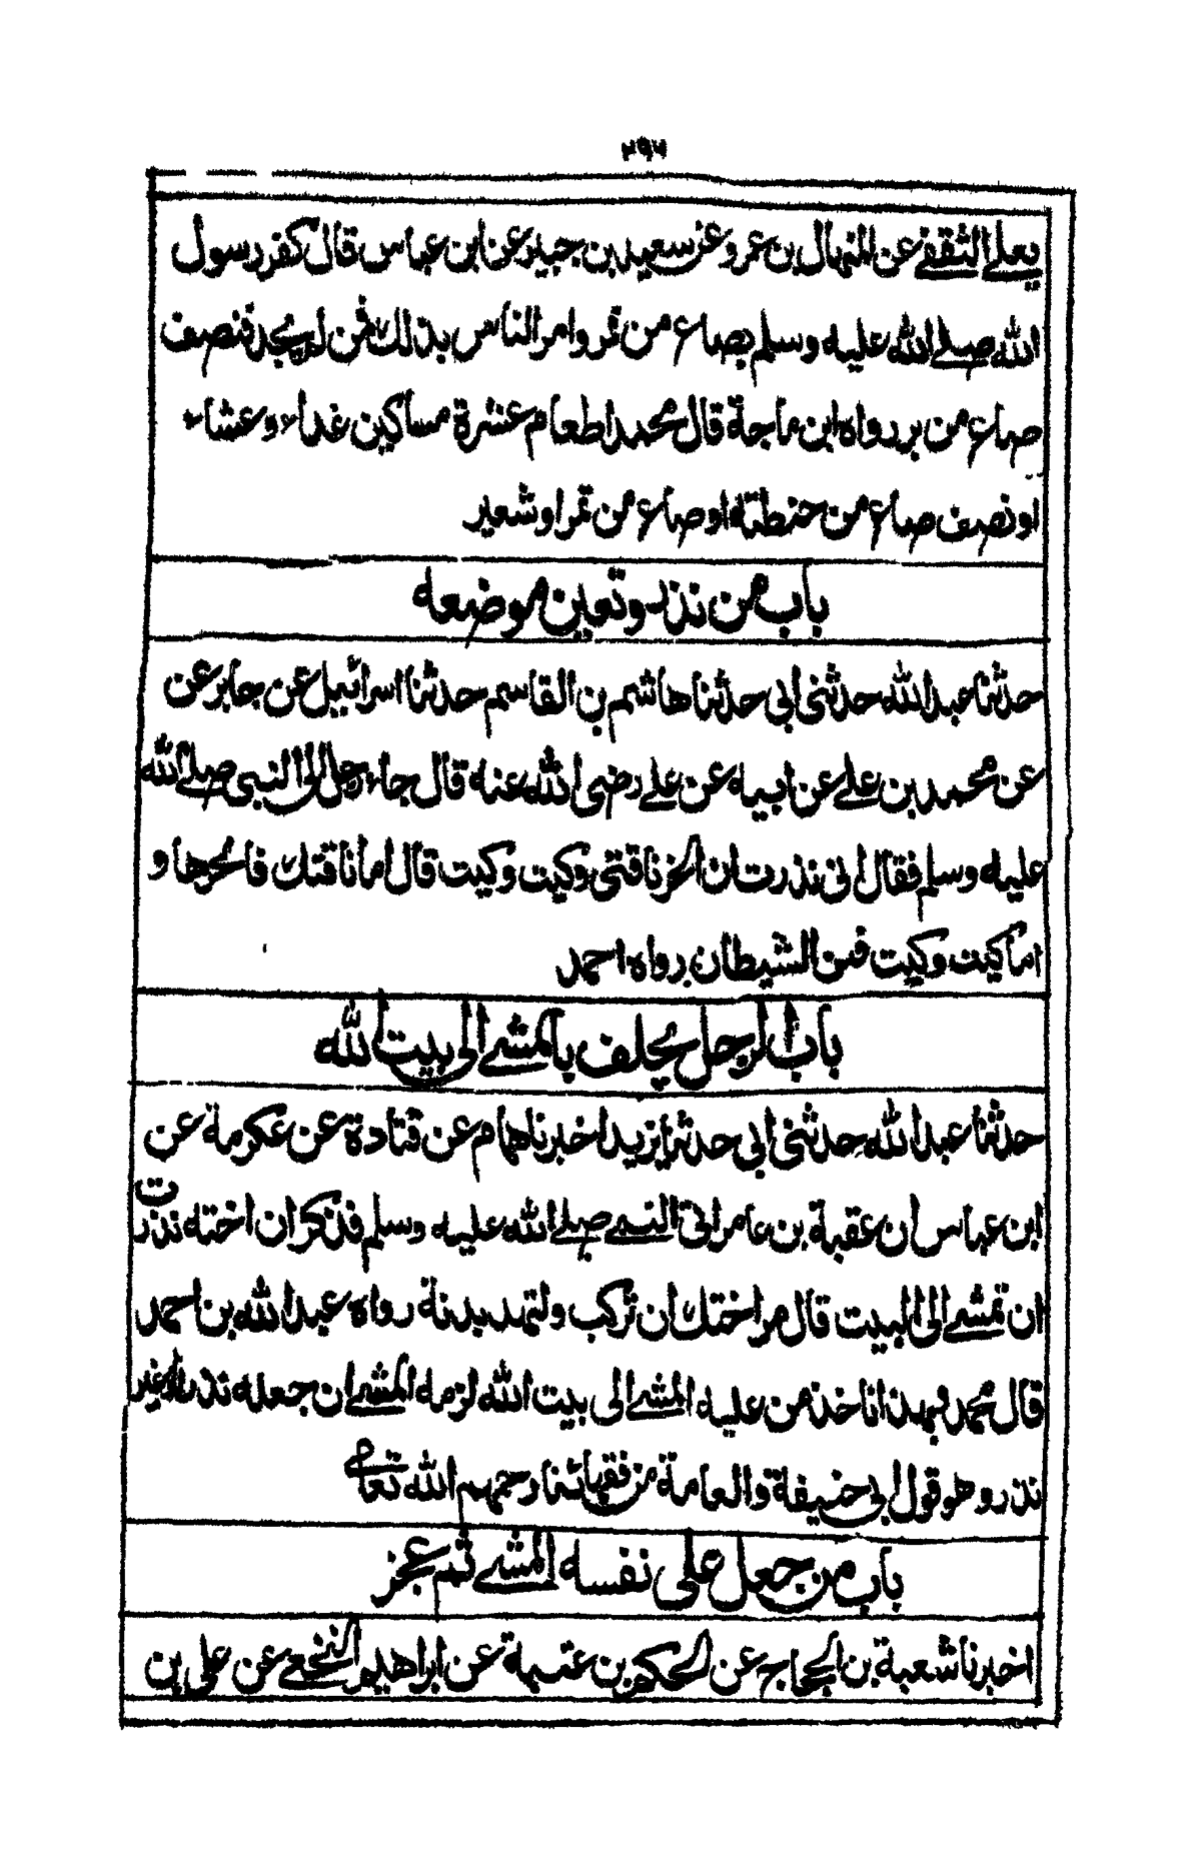 ٢٩٦
يعلى الثقفى عن المنهال بن عمرو عن سعيد بن جبير عن ابن عباس قال كفر رسول
الله صلى الله عليه وسلم بصاع من تمر وامر الناس بذلك فمن لم يجد فنصف
صاع من بر رواه ابن ماجة قال محمد اطعام عشرة مساكين غداء وعشاء
او نصف صاع من حنطة او صاع من تمر او شعير
باب من نذر وتعين موضعه
حدثنا عبد الله حدثنى ابى حدثنا هاشم بن القاسم حدثنا اسرائيل عن جابر عن
عن محمد بن على عن ابيه عن على رضى الله عنه قال جاء رجل الى النبى صلى الله
عليه وسلم فقال انى نذرت ان انحر ناقتى وكيت وكيت قال اما ناقتك فانحرها و
اما كيت وكيت فمن الشيطان رواه احمد
باب الرجل يحلف بالمشى الى بيت الله
حدثنا عبد الله حدثنى ابى حدثنا يزيد اخبرنا همام عن قتادة عن عكرمة عن
ابن عباس ان عقبة بن عامر اتى النبى صلى الله عليه وسلم فذكر ان اخته نذرت
ان تمشى الى البيت قال مر اختك ان تركب ولتهد بدنة رواه عبد الله بن احمد
قال محمد وبهذا ناخذ من عليه المشى الى بيت الله لزمه المشى ان جعله نذرا او غير
نذر وهو قول ابى حنيفة والعامة من فقهائنا رحمهم الله تعالى
باب من جعل على نفسه المشى ثم عجز
اخبرنا شعبة بن الحجاج عن الحكم بن عتبة عن ابراهيم النخعى عن على بن